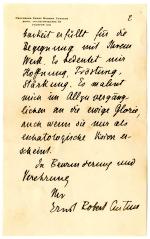 PROFESSOR ERNST ROBERT CURTIUS
2
barkeit erfüllt für die
Begegnung mit Ihrem
Werk. Es bedeutet mir
Hoffnung, Tröstung,
Stärkung. Es mahnt
mich im Allzuvergäng-
lichen an die ewige Glorie,
auch wenn sie nur als
eschatologische Vision er-
scheint.
In Bewunderung und
Verehrung
Ihr
Ernst Robert Curtius